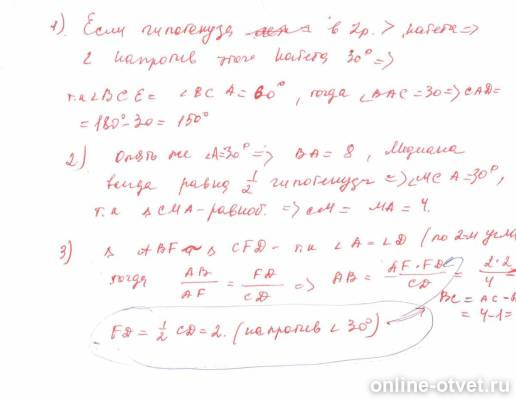 1) Если гипотенуза в 2р. > катета =>
∠ напротив этого катета 30° =>
т.к ∠BCE = ∠BCA = 60°, тогда ∠BAC = 30 => CAD =
= 180° - 30 = 150°
2) Опять же ∠A = 30° => BA = 8, Медиана
всегда равна 1/2 гипотенузы => ∠MCA = 30°,
т.к △CMA - равноб. => CM = MA = 4.
3) △ABF ~ △CFD - т.к ∠A = ∠D (по 2-м
тогда AB/AF = FD/CD => AB = AF·FD/CD = 2·2/4
BC = AC -
= 4-1 =
FD = 1/2 CD = 2. (напротив ∠30°)
online-otvet.ru